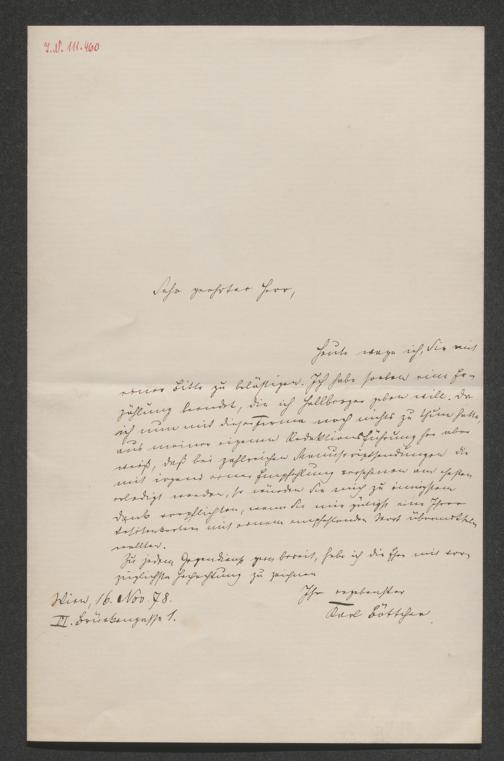 I.N. 111.460
Sehr geehrter Herr,
Heute wage ich, Sie mit
einer Bitte zu belästigen. Ich habe soeben eine Er-
zählung beendet, die ich Hallberger geben will. Da
ich nun mit dieser Firma noch nichts zu thun hatte,
aus meiner eigenen Redaktionsführung her aber
weiß, daß bei zahlreichen Manuscriptsendungen die
mit irgend einer Empfehlung versehenen am ehesten
erledigt werden, so würden Sie mich zu innigstem
Dank verpflichten, wenn Sie mir gütigst eine Ihrer
Visitenkarten mit einem empfehlenden Wort übermitteln
wollten.
Zu jedem Gegendienst gern bereit, habe ich die Ehre mit vor-
züglichster Hochachtung zu zeichnen
Ihr ergebenster
Karl Böttcher
Wien, 16. Nov. 78.
Brückengasse 1.